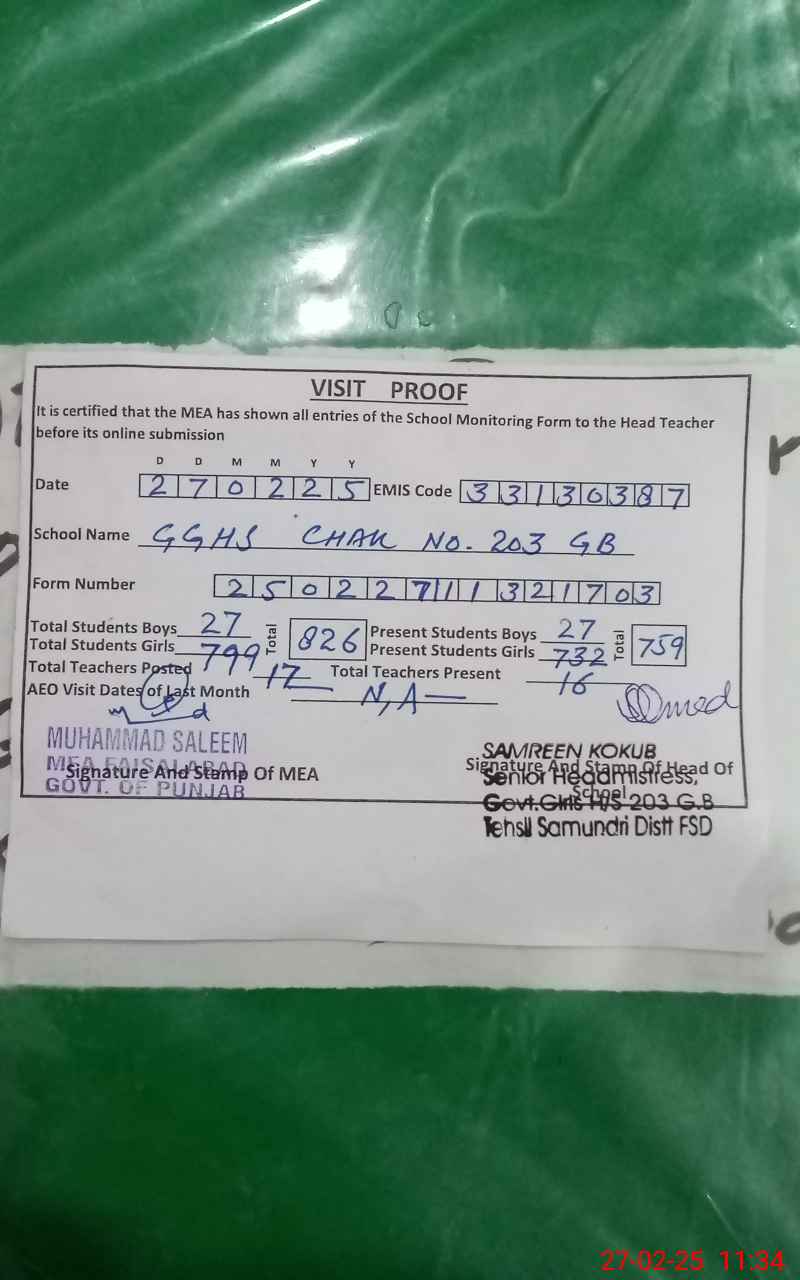 VISIT PROOF
It is certified that the MEA has shown all entries of the School Monitoring Form to the Head Teacher
before its online submission
D D M M Y Y
Date 2 7 0 2 2 5 EMIS Code 3 3 1 3 0 3 8 7
School Name GGHS CHAK NO. 203 GB
Form Number 2 5 0 2 2 7 1 1 3 2 1 7 0 3
Total Students Boys 27 Total 826 Present Students Boys 27 Total 759
Total Students Girls 799 Present Students Girls 732
Total Teachers Posted 17 Total Teachers Present 16
AEO Visit Dates of Last Month N,A
MUHAMMAD SALEEM
MEA FAISALABAD
GOVT. OF PUNJAB
Signature And Stamp Of MEA
SAMREEN KOKUB
Signature And Stamp Of Head Of
School
Senior Headmistress,
Govt.Girls H/S 203 G.B
Tehsil Samundri Distt FSD
27-02-25 11:34